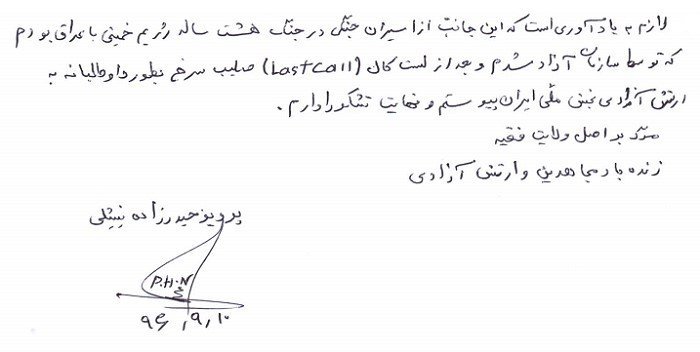 لازم به یادآوری است که این جانب از اسیران جنگی در جنگ هشت ساله رژیم خمینی با عراق بودم
که توسط سازمان آزاد شدم و بعد از لست کال (Last call) صلیب سرخ بطور داوطلبانه به
ارتش آزادی بخش ملی ایران پیوستم و نهایت تشکر را دارم.
مرگ بر اصل ولایت فقیه
زنده باد مجاهدین و ارتش آزادی
پرویز حیدرزاده نیشلی
P.H.N
۹۶،۹،۱۰